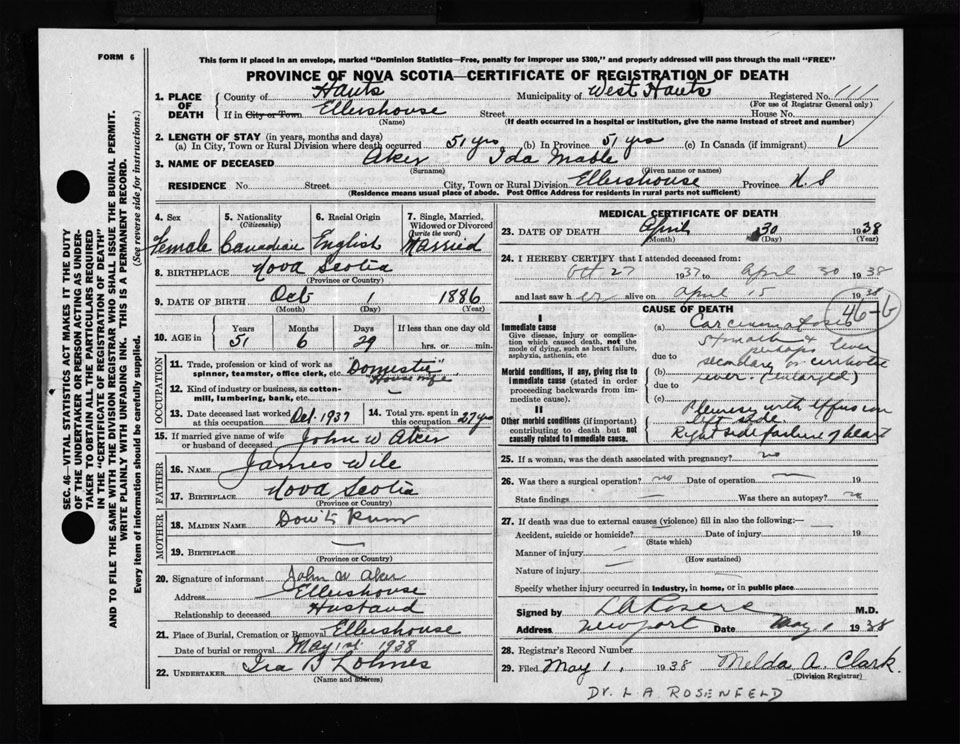 FORM 6
This form if placed in an envelope, marked "Dominion Statistics—Free, penalty for improper use $300," and properly addressed will pass through the mail "FREE"
PROVINCE OF NOVA SCOTIA—CERTIFICATE OF REGISTRATION OF DEATH
1. PLACE OF DEATH
County of Hants Municipality of West Hants Registered No.
(For use of Registrar General only)
If in City or Town Ellershouse Street House No.
(Name) (If death occurred in a hospital or institution, give the name instead of street and number)
2. LENGTH OF STAY (in years, months and days)
(a) In City, Town or Rural Division where death occurred 51 yrs (b) In Province 51 yrs (c) In Canada (if immigrant)
3. NAME OF DECEASED Aker Ida Mable
(Surname) (Given name or names)
RESIDENCE No. Street City, Town or Rural Division Ellershouse Province N.S
(Residence means usual place of abode. Post Office Address for residents in rural parts not sufficient)
4. Sex Female
5. Nationality (Citizenship) Canadian
6. Racial Origin English
7. Single, Married, Widowed or Divorced (write the word) Married
8. BIRTHPLACE Nova Scotia
(Province or Country)
9. DATE OF BIRTH Oct 1 1886
(Month) (Day) (Year)
10. AGE Years 51 Months 6 Days 29 If less than one day old hrs. or min.
OCCUPATION
11. Trade, profession or kind of work as spinner, teamster, office clerk, etc. "Domestic" House wife
12. Kind of industry or business, as cotton-mill, lumbering, bank, etc.
13. Date deceased last worked at this occupation Oct. 1937
14. Total yrs. spent in this occupation 27 yrs
15. If married give name of wife or husband of deceased John W Aker
FATHER
16. NAME James Wile
17. BIRTHPLACE Nova Scotia
(Province or Country)
MOTHER
18. MAIDEN NAME Don't know
19. BIRTHPLACE —
(Province or Country)
20. Signature of informant John W Aker
Address Ellershouse
Relationship to deceased Husband
21. Place of Burial, Cremation or Removal Ellershouse
Date of burial or removal May 1st 1938
22. UNDERTAKER Ira B
(Name and address)
MEDICAL CERTIFICATE OF DEATH
23. DATE OF DEATH April 30 1938
(Month) (Day) (Year)
24. I HEREBY CERTIFY that I attended deceased from:
Oct 27 1937 to April 30 1938
and last saw her alive on April 15 1938
46-b
CAUSE OF DEATH
I
Immediate cause
Give disease, injury or complication which caused death, not the mode of dying, such as heart failure, asphyxia, asthenia, etc
Morbid conditions, if any, giving rise to immediate cause (stated in order proceeding backwards from immediate cause).
II
Other morbid conditions (if important) contributing to death but not causally related to immediate cause.
(a) Carcinomatosis
stomach & perhaps liver
due to
(b) secondary on cirrhotic
due to liver. (enlarged)
(c)
Pleurisy with effusion
left side
Right side failure of heart
25. If a woman, was the death associated with pregnancy? no
26. Was there a surgical operation? no Date of operation — 19
State findings — Was there an autopsy? no
27. If death was due to external causes (violence) fill in also the following:—
Accident, suicide or homicide? Date of injury 19
(State which)
Manner of injury —
(How sustained)
Nature of injury —
Specify whether injury occurred in industry, in home, or in public place
Signed by M.D.
Address Newport Date May 1 1938
28. Registrar's Record Number
29. Filed May 1, 1938 Melda A. Clark.
(Division Registrar)
DR. L A ROSENFELD
SEC. 46—VITAL STATISTICS ACT MAKES IT THE DUTY
OF THE UNDERTAKER OR PERSON ACTING AS UNDER-
TAKER TO OBTAIN ALL THE PARTICULARS REQUIRED
IN THE "CERTIFICATE OF REGISTRATION OF DEATH"
AND TO FILE THE SAME WITH THE DIVISION REGISTRAR WHO SHALL ISSUE THE BURIAL PERMIT.
WRITE PLAINLY WITH UNFADING INK. THIS IS A PERMANENT RECORD.
Every item of information should be carefully supplied. (See reverse side for instructions.)